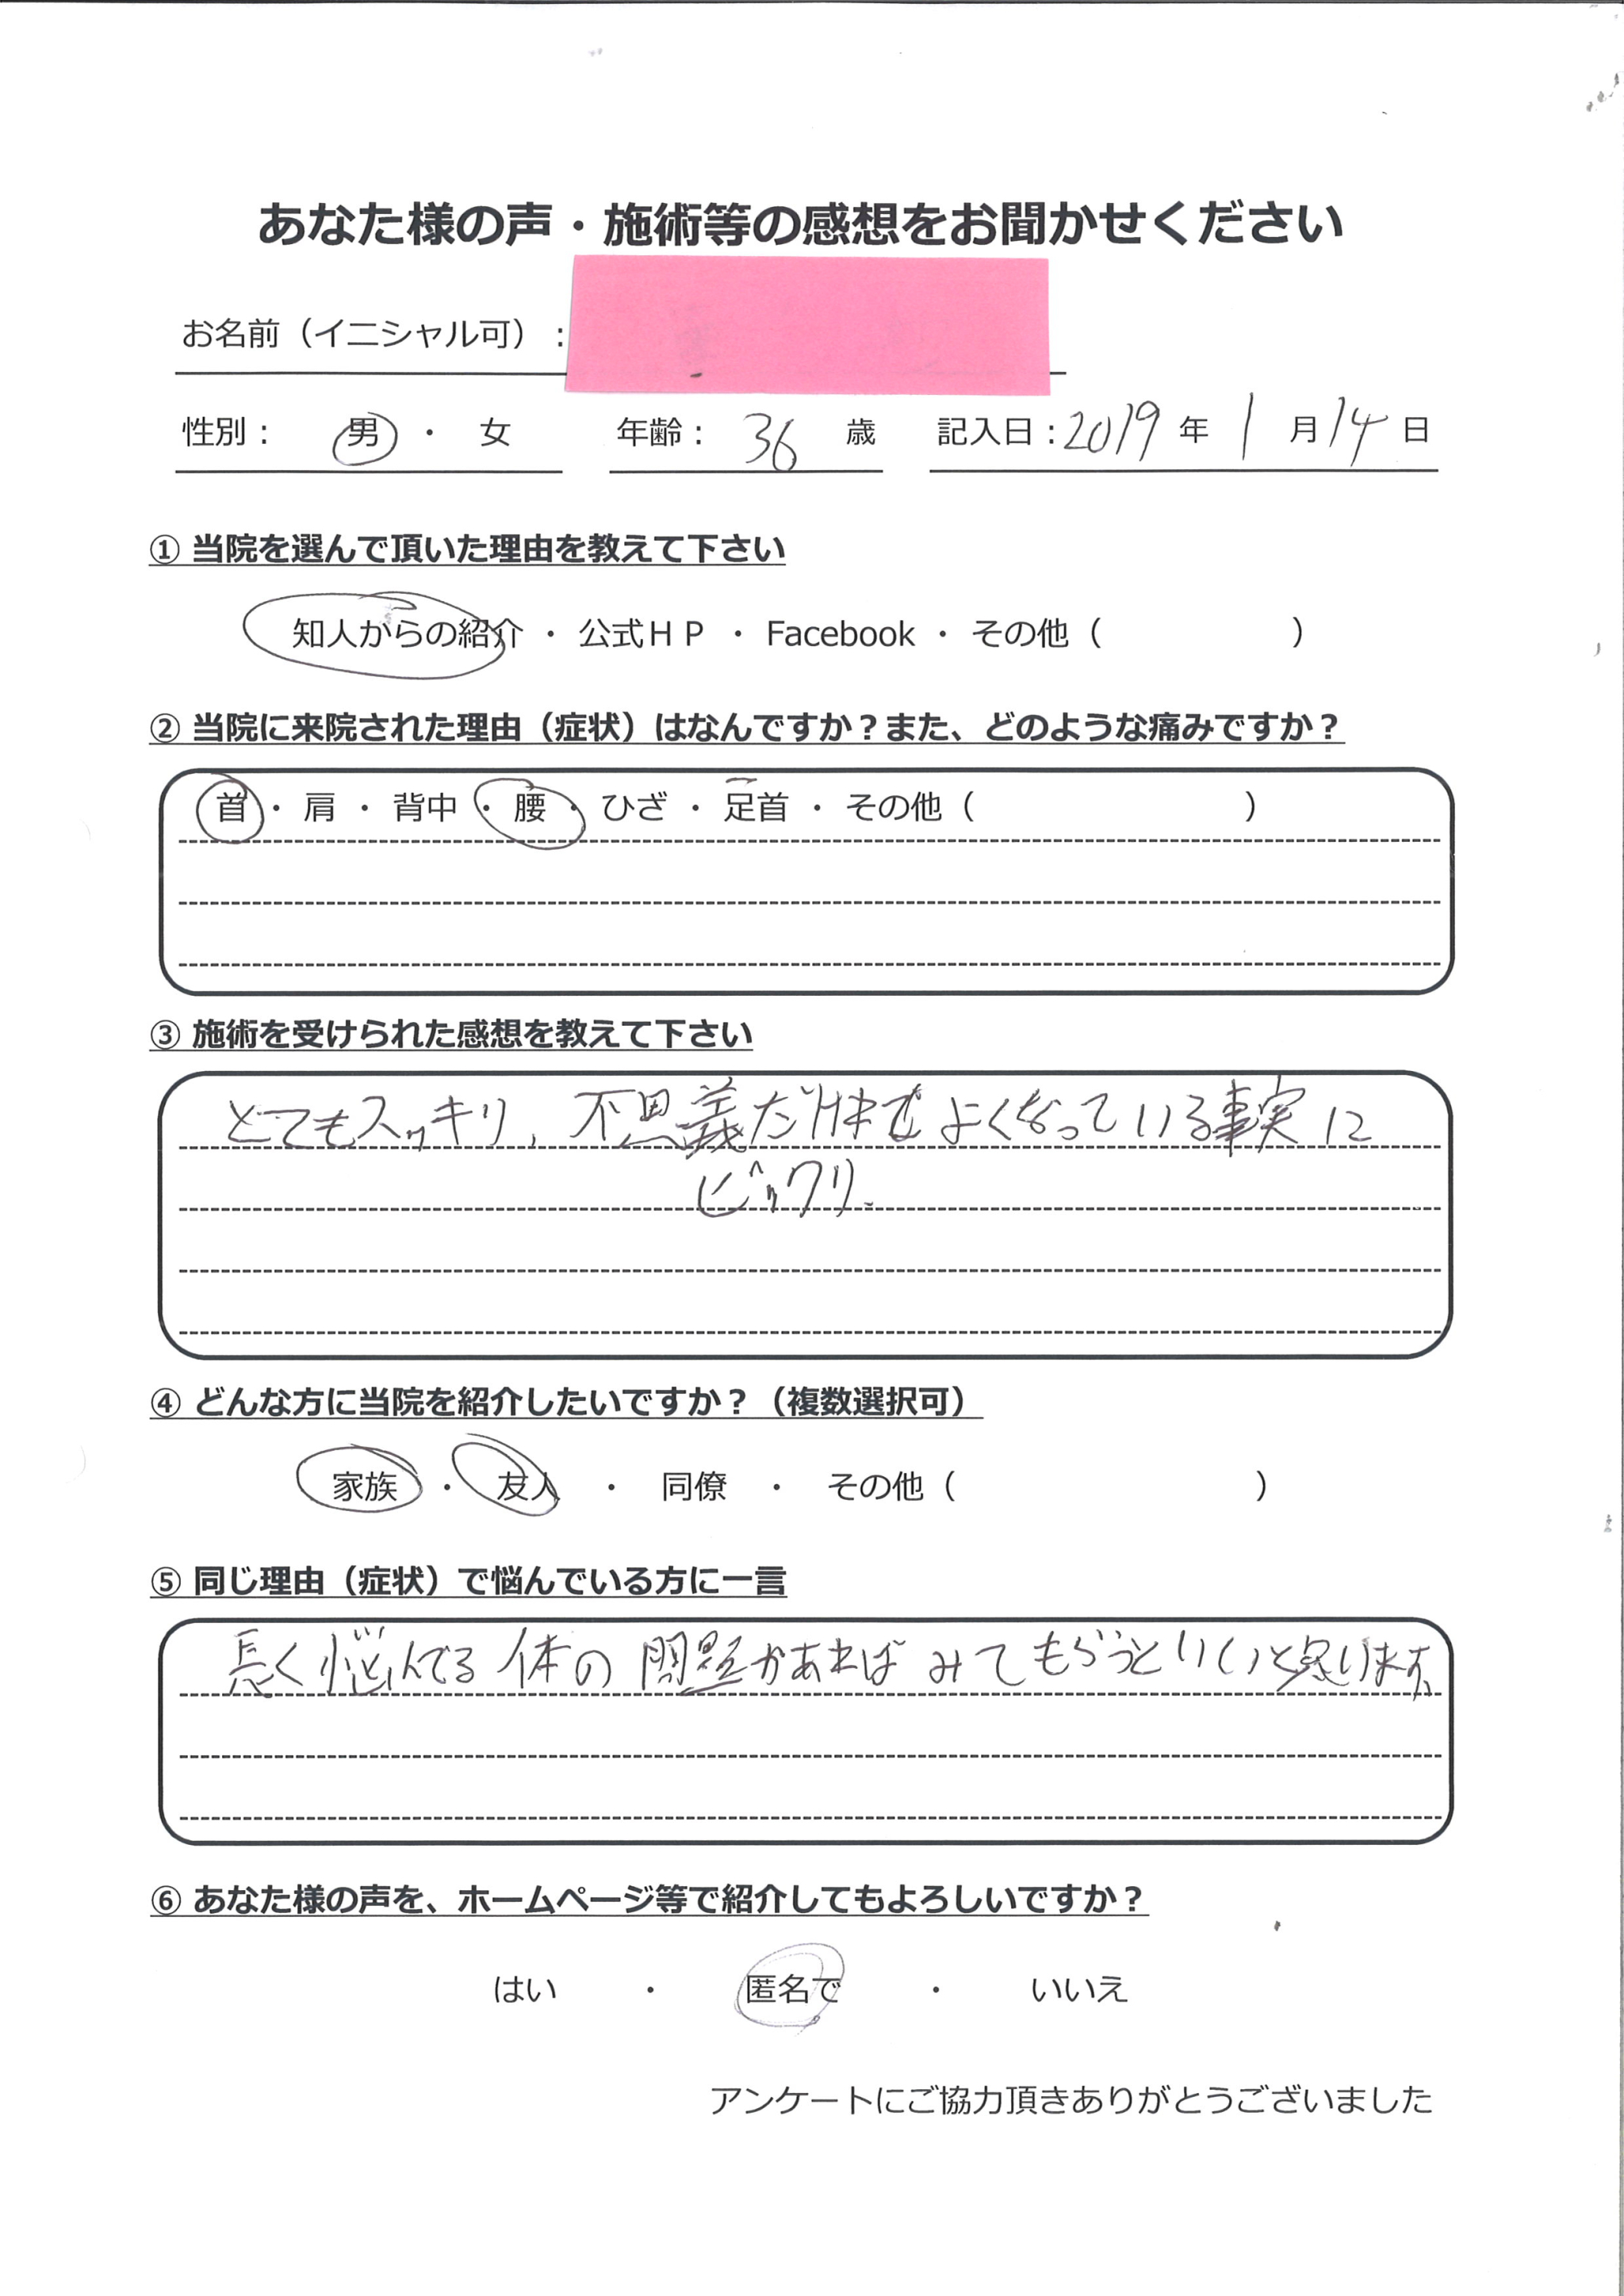 あなた様の声・施術等の感想をお聞かせください
お名前（イニシャル可）：
性別： 男 ・ 女 年齢： 36 歳 記入日：2019 年 1 月 14 日
① 当院を選んで頂いた理由を教えて下さい
知人からの紹介 ・ 公式ＨＰ ・ Facebook ・ その他（ ）
② 当院に来院された理由（症状）はなんですか？また、どのような痛みですか？
首 ・ 肩 ・ 背中 ・ 腰 ・ ひざ ・ 足首 ・ その他（ ）
③ 施術を受けられた感想を教えて下さい
とてもスッキリ、不思義だけど よくなっている事実に
ビックリ、
④ どんな方に当院を紹介したいですか？（複数選択可）
家族 ・ 友人 ・ 同僚 ・ その他（ ）
⑤ 同じ理由（症状）で悩んでいる方に一言
長く悩んでる 体の 問題があれば みて もらうといいと思います。
⑥ あなた様の声を、ホームページ等で紹介してもよろしいですか？
はい ・ 匿名で ・ いいえ
アンケートにご協力頂きありがとうございました